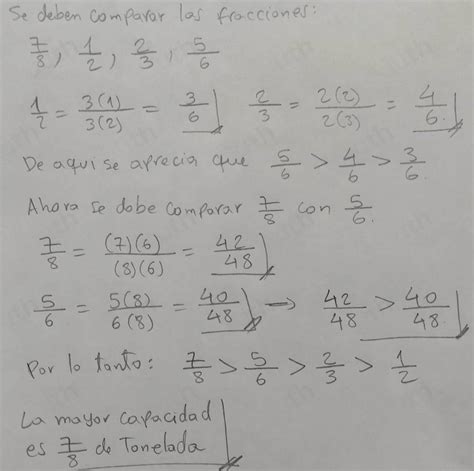 Se deben comparar las fracciones:
7/8, 1/2, 2/3, 5/6
1/2 = 3(1)/3(2) = 3/6 2/3 = 2(2)/2(3) = 4/6.
De aqui se aprecia que 5/6 > 4/6 > 3/6.
Ahora se debe comparar 7/8 con 5/6.
7/8 = (7)(6)/(8)(6) = 42/48
5/6 = 5(8)/6(8) = 40/48 → 42/48 > 40/48.
Por lo tanto: 7/8 > 5/6 > 2/3 > 1/2
La mayor capacidad
es 7/8 de Tonelada